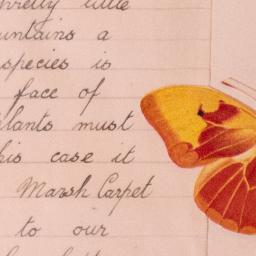 little
untains a
species is
face of
plants must
his case it
Marsh Carpet
to our